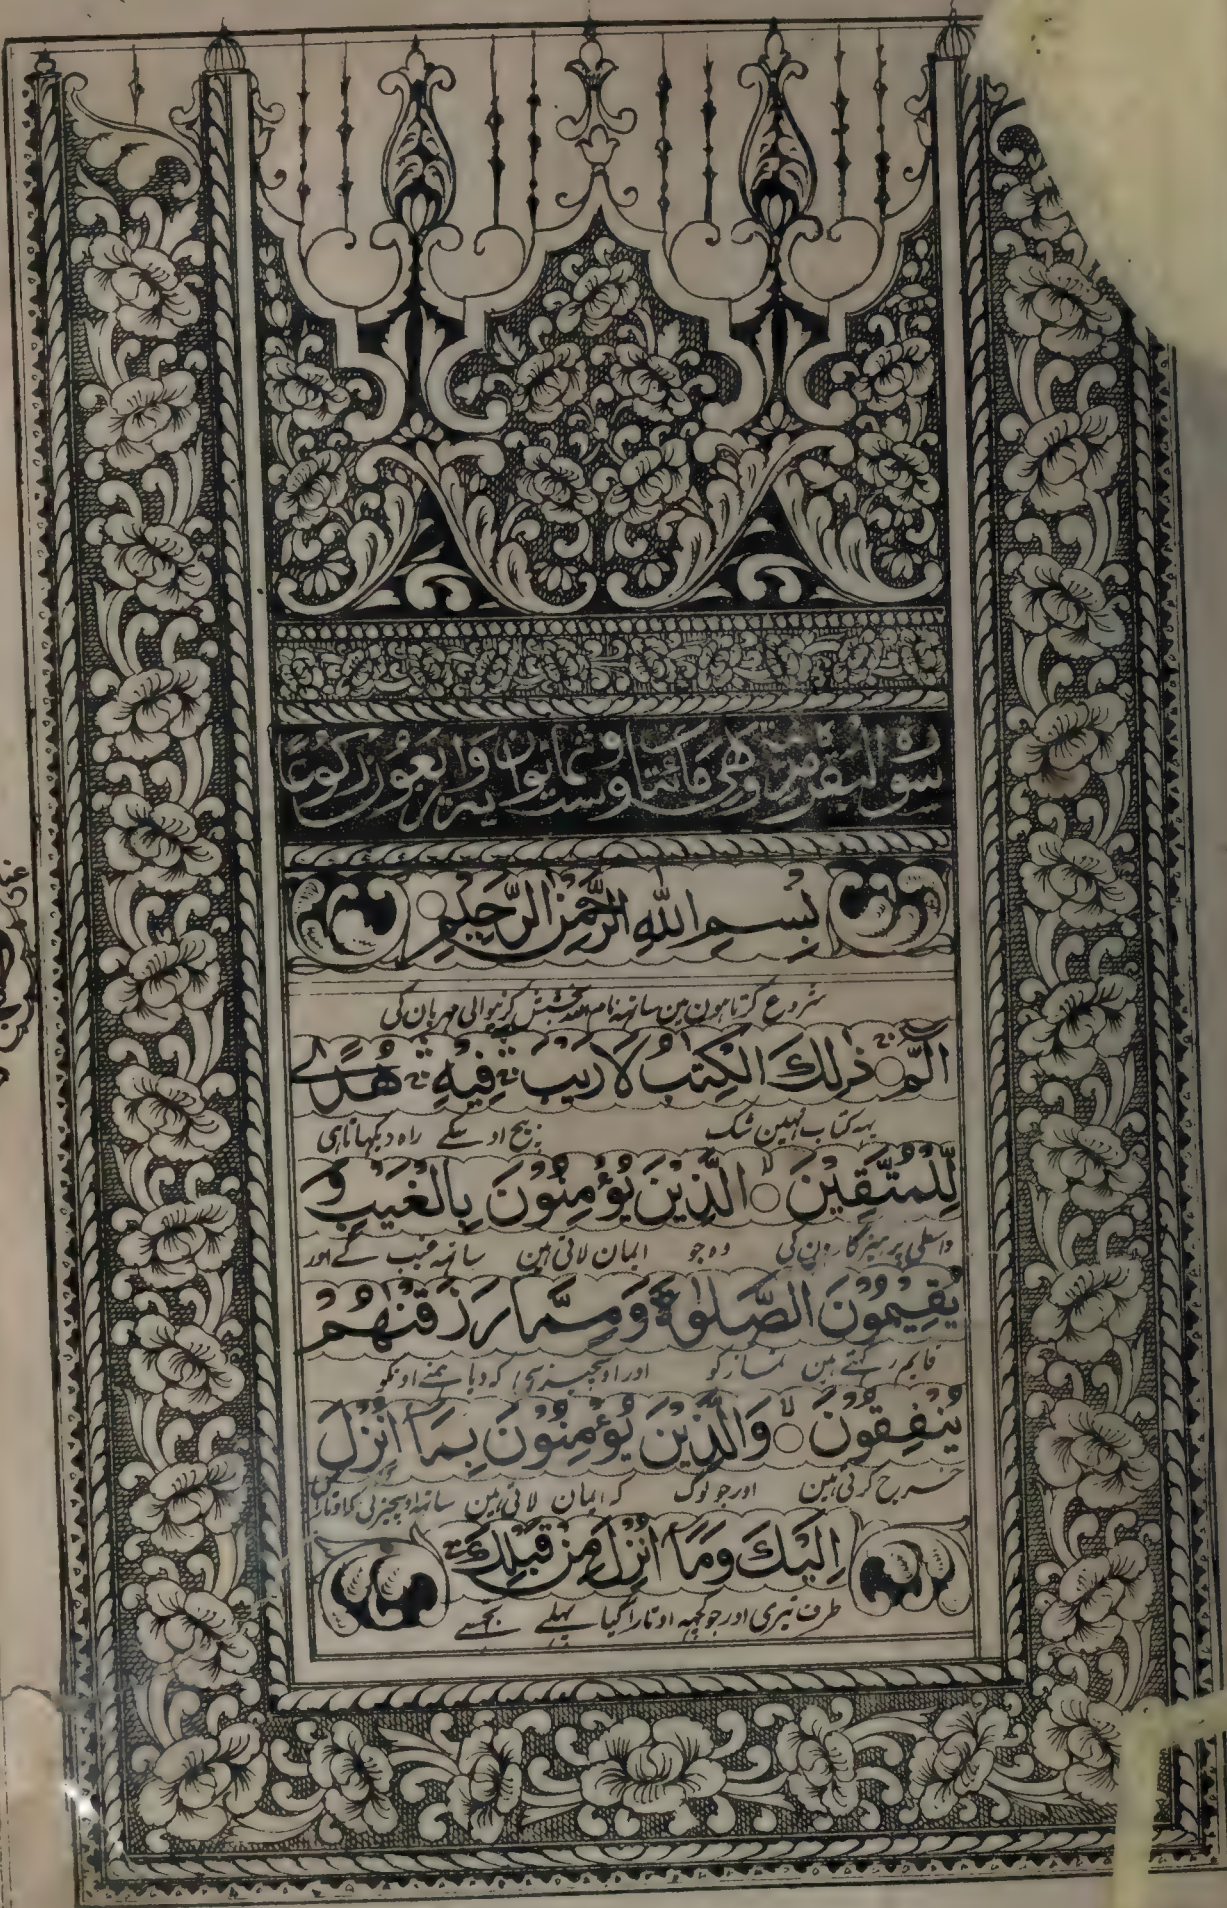 سورة البقرة وهي مائتان وست وثمانون آية واربعون ركوعا
بِسْمِ اللهِ الرَّحْمٰنِ الرَّحِيْمِ
شروع کرتا ہون مین ساتھ نام اللہ بخشش کرنیوالی مہربان کی
الٓمّٓ ۚ ذٰلِكَ الْكِتٰبُ لَا رَيْبَ ۛ فِيْهِ ۛ هُدًى
یہہ کتاب نہین شک بیچ اوسکے راہ دکہاتا ہی
لِّلْمُتَّقِيْنَ ۙ الَّذِيْنَ يُؤْمِنُوْنَ بِالْغَيْبِ وَ
واسطی پرہیزگارون کی وہ جو ایمان لاتی ہین ساتھ غیب کے اور
يُقِيْمُوْنَ الصَّلٰوةَ وَمِمَّا رَزَقْنٰهُمْ
قایم رکہتے ہین نماز کو اور اوسچیز سی کہ دیا ہمنے اونکو
يُنْفِقُوْنَ ۙ وَالَّذِيْنَ يُؤْمِنُوْنَ بِمَآ اُنْزِلَ
خرچ کرتی ہین اور جو لوگ کہ ایمان لاتی ہین ساتھ اوسچیز کی
اِلَيْكَ وَمَآ اُنْزِلَ مِنْ قَبْلِكَ ۚ
طرف تیری اور جو کچہہ اوتارا گیا پہلے تجہسے